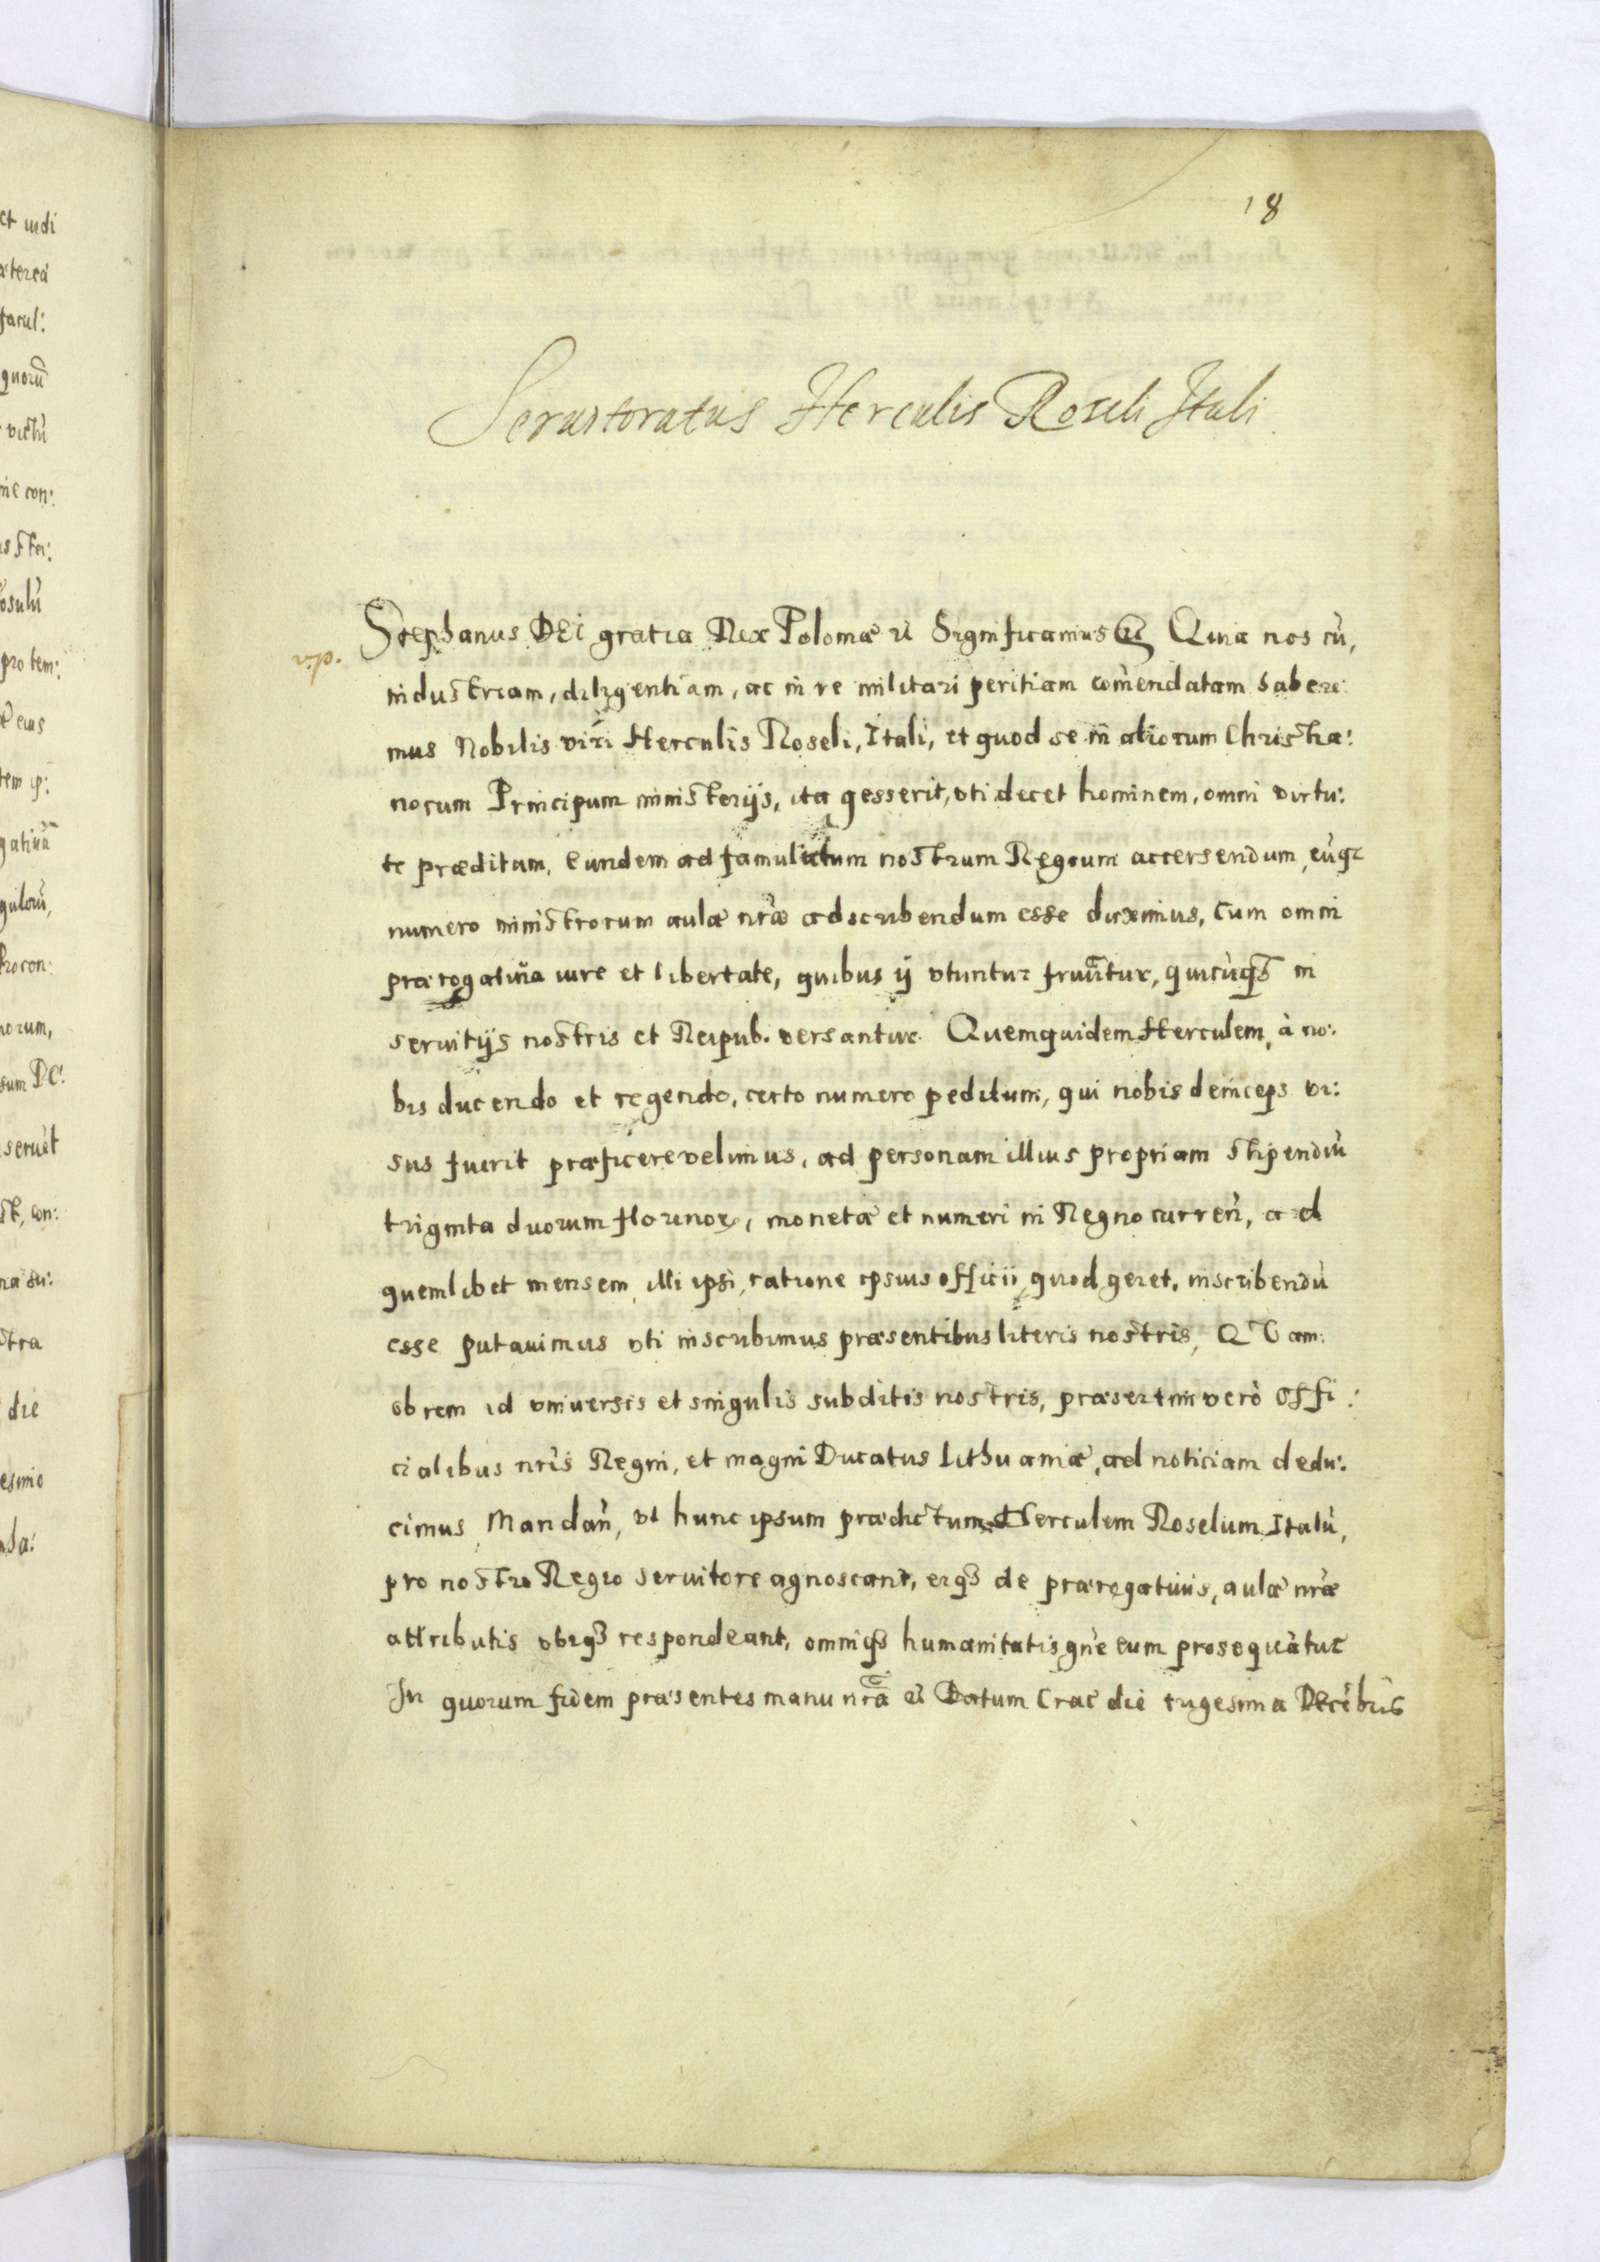 18
Seruitoratus Herculis Roseli Itali
v.p.
Stephanus DEi gratia Rex Poloniæ &c Significamus &c Quia nos cù,
industriam, diligentiam, ac in re militari peritiam comèndatam habere:
mus Nobilis viri Herculis Roseli, Itali, et quod se in aliorum Christia:
norum Principum ministerijs, ita gesserit, vti decet hominem, omni virtu:
te præditam, eundem ad famulitium nostrum Regium accersendum, eùqz
numero ministrorum aulæ nr̃æ adscribendum esse duximus, cum omni
prærogatiua iure et libertate, quibus ij vtuntur fruũtur, quicùqz in
seruitijs nostris et Reipub. versantur. Quemquidem Herculem, à no:
bis ducendo et regendo, certo numero peditum, qui nobis deinceps vi:
sus fuerit præficere velimus, ad personam illius propriam stipendiù
triginta duorum florinor, monetæ et numeri in Regno curreñ, ad
quemlibet mensem, illi ipsi, ratione ipsius officii, quod geret, inscribendù
esse putauimus vti inscribimus præsentibus literis nostris, QVam:
ob rem id vniuersis et singulis subditis nostris, præsertim verò Offi:
cialibus nr̃is Regni, et magni Ducatus Lithuaniæ, ad noticiam dedu:
cimus, Mandañ, vt hunc ipsum prædictum Herculem Roselum Italù,
pro nostro Regio seruitore agnoscant, eiqz de prærogatiuis, aulæ nr̃æ
attributis vbiqz respondeant, omniqz humanitatis gñe eum prosequàtur
In quorum fidem præsentes manu nrã &c Datum Crac die trigesima Decèbris